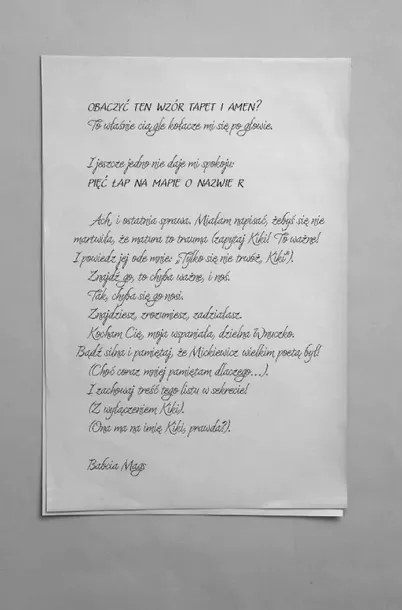 OBACZYĆ TEN WZÓR TAPET I AMEN?
To właśnie ciągle kołacze mi się po głowie.
I jeszcze jedno nie daje mi spokoju:
PIĘĆ ŁAP NA MAPIE O NAZWIE R
Ach, i ostatnia sprawa. Miałam napisać, żebyś się nie
martwiła, że matura to trauma (zapytaj Kiki! To ważne!
I powiedz jej ode mnie: „Tylko się nie trwóż, Kiki").
Znajdź go, to chyba ważne, i noś.
Tak, chyba się go nosi.
Znajdziesz, zrozumiesz, zadziałasz.
Kocham Cię, moja wspaniała, dzielna Wnuczko.
Bądź silna i pamiętaj, że Mickiewicz wielkim poetą był!
(Choć coraz mniej pamiętam dlaczego...).
I zachowaj treść tego listu w sekrecie!
(Z wyłączeniem Kiki).
(Ona ma na imię Kiki, prawda?).
Babcia Mags